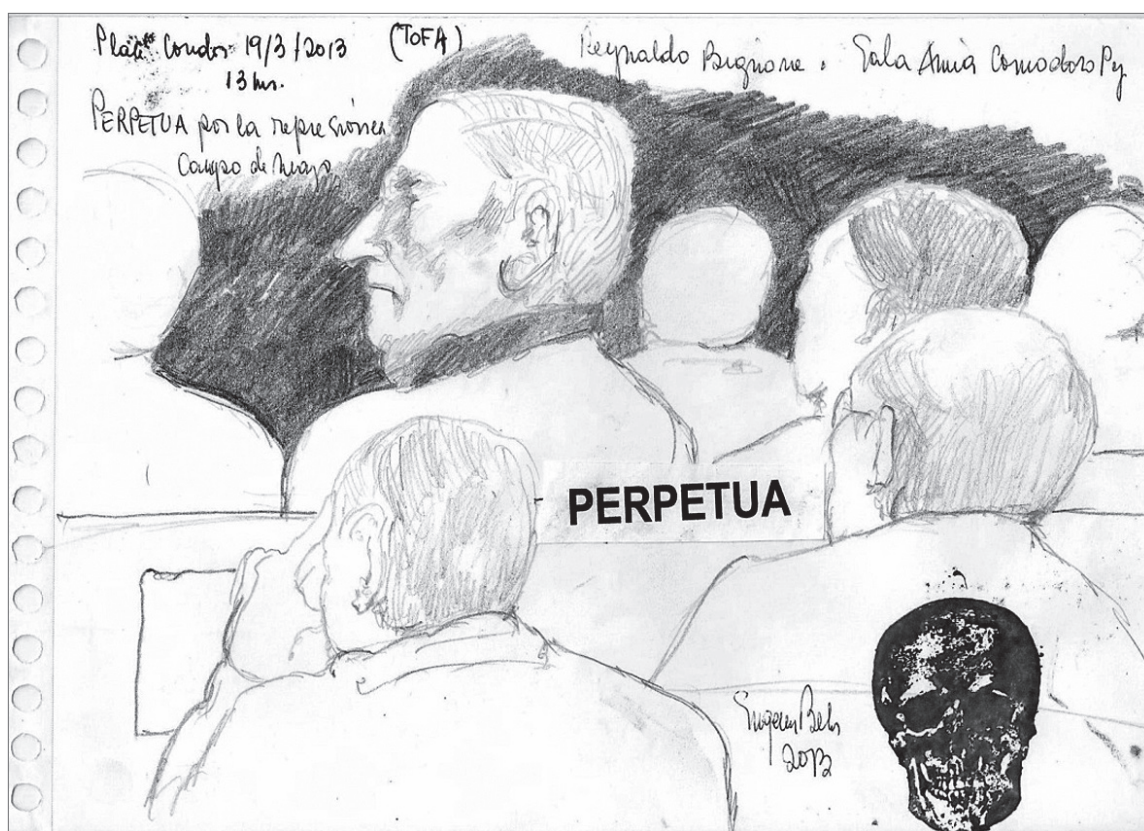 Plan Condor 19/3/2013 (TOFA)
13 hs.
PERPETUA por la represión en
Campo de Mayo
Reynaldo Bignone. Sala Amia Comodoro Py
PERPETUA
2013